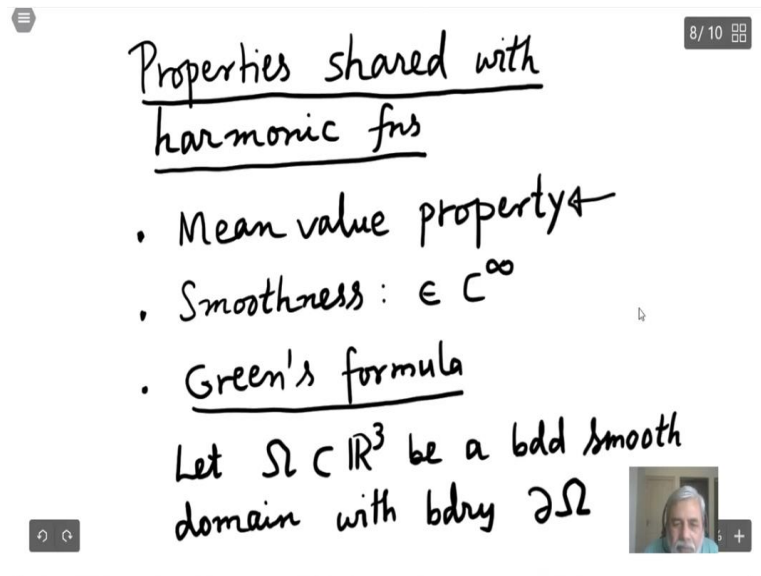 8/10
Properties shared with
harmonic fns
• Mean value property ←
• Smoothness : ∈ C^∞
• Green's formula
Let Ω ⊂ ℝ³ be a bdd smooth
domain with bdry ∂Ω